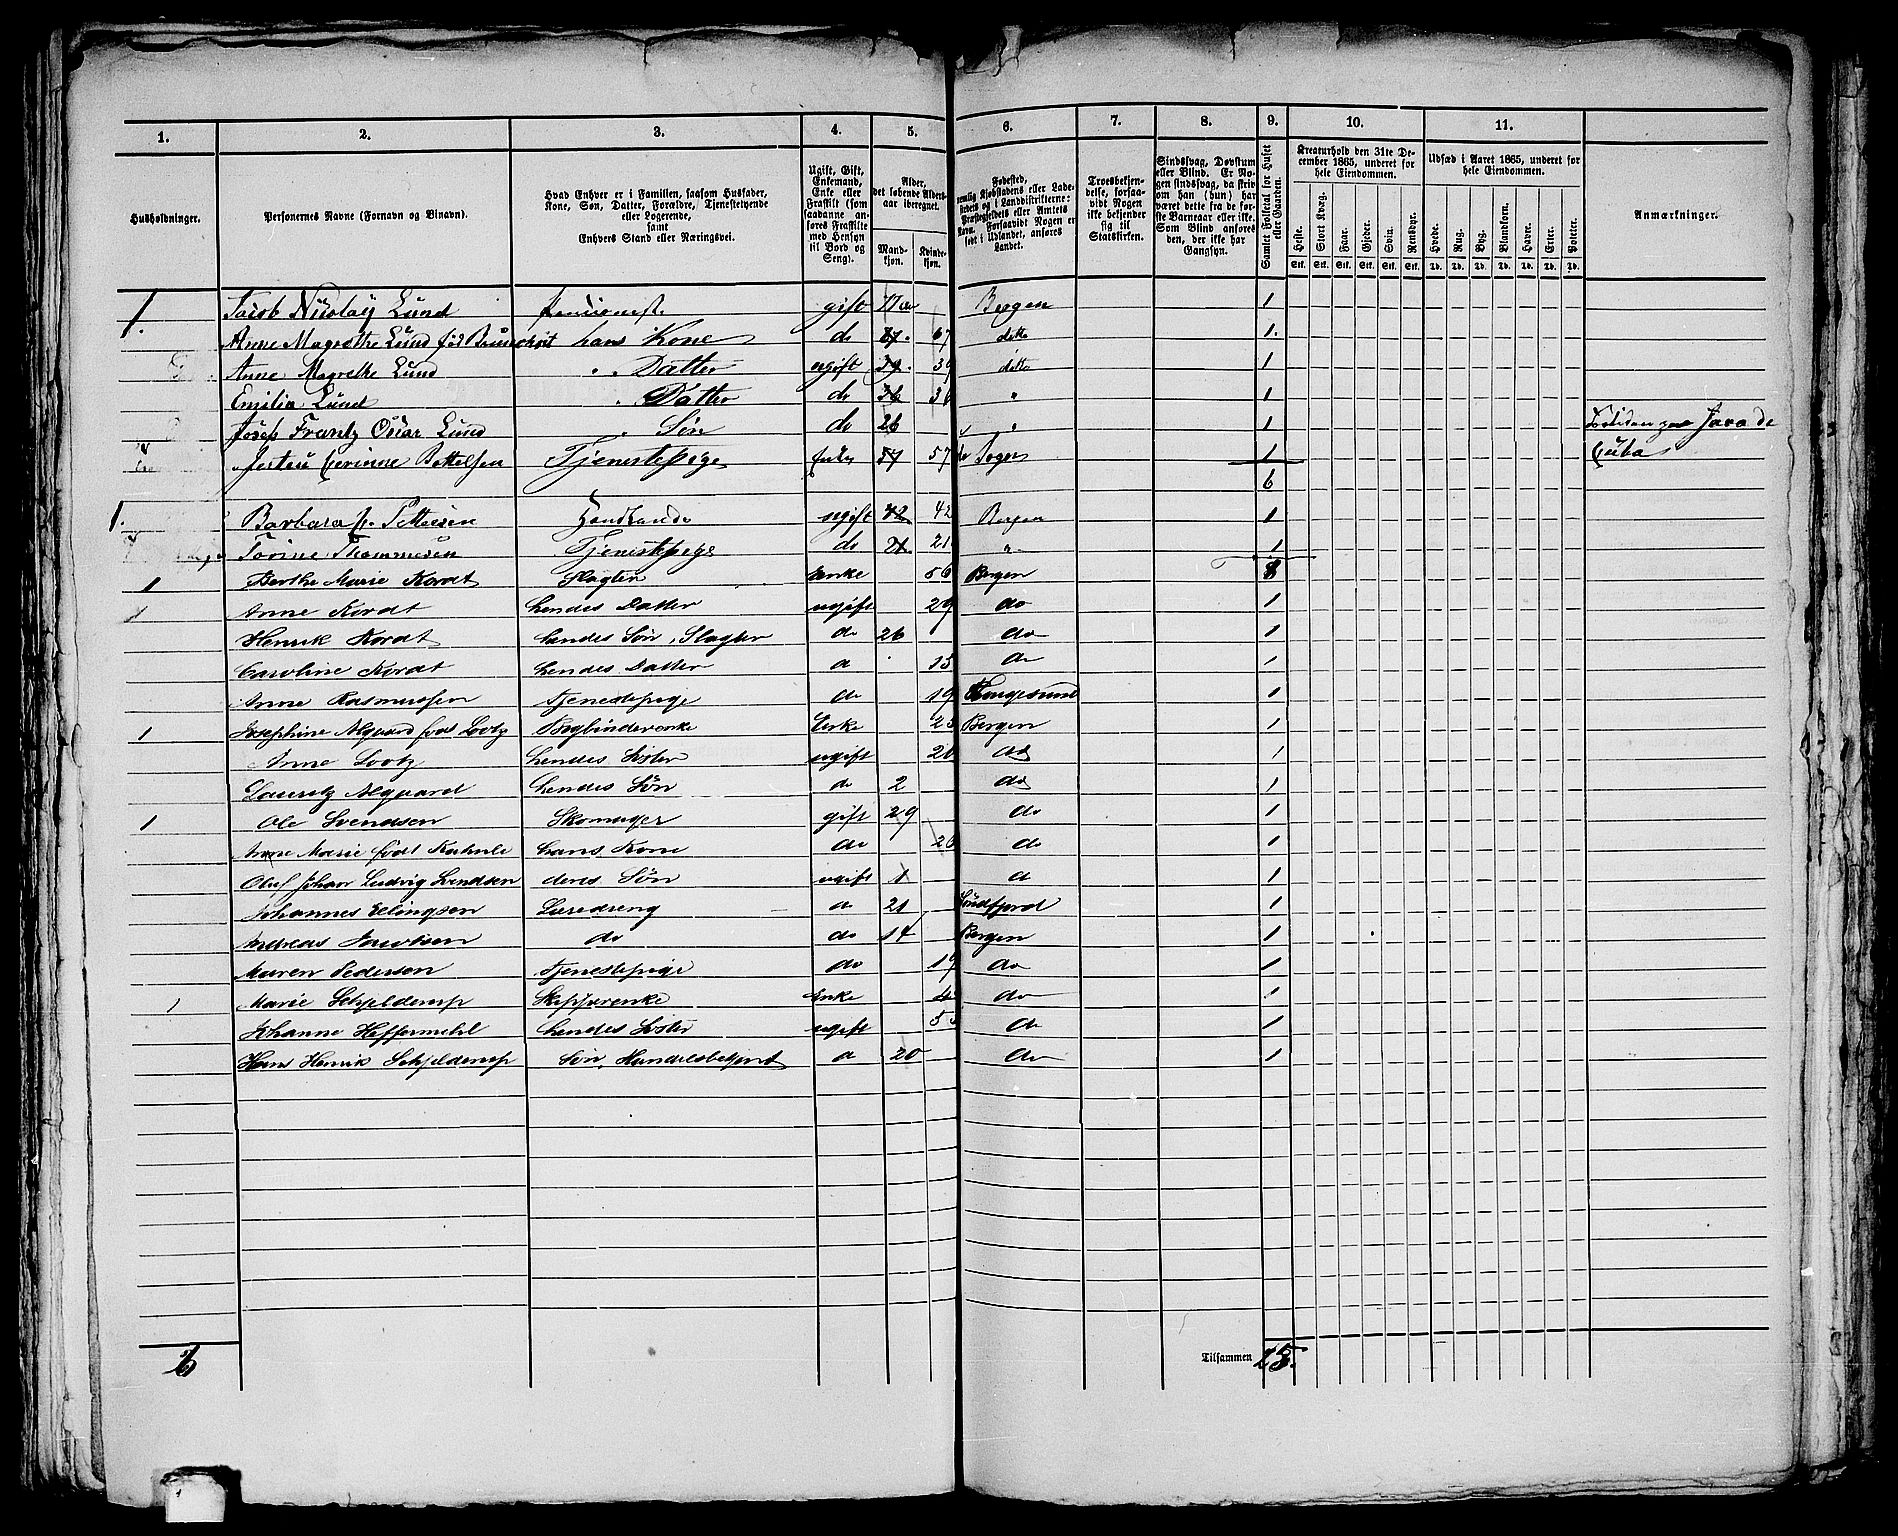 1. 2. 3. 4. 5. 6. 7. 8. 9. 10. 11.
Husholdninger.
Personernes Navne (Fornavn og Binavn).
Hvad Enhver er i Familien, saasom Husfader,
Kone, Søn, Datter, Forældre, Tjenestetyende
eller Logerende,
samt
Enhvers Stand eller Næringsvei.
Ugift, Gift,
Enkemand,
Enke eller
Fraskilt (som
saadanne an-
føres Fraskilte
med Hensyn
til Bord og
Seng).
Alder,
det løbende Alders-
aar iberegnet.
Mand-
kjøn.
Kvinde-
kjøn.
Fødested,
nemlig Kjøbstadens eller Lade-
stedets og i Landdistrikterne:
Præstegjeldets eller Amtets
Navn. Forsaavidt Nogen er
født i Udlandet, anføres
Landet.
Troesbekjen-
delse, forsaa-
vidt Nogen
ikke bekjender
sig til
Statskirken.
Sindssvag, Døvstum
eller Blind. Er No-
gen sindssvag, da skriv
om han (hun) har
været dette fra de før-
ste Barneaar eller ikke.
Som Blind anføres
den, der ikke har
Gangsyn.
Samlet Folketal for Huset
eller Gaarden.
Kreaturhold den 31te De-
cember 1865, underet for
hele Eiendommen.
Heste. Stort Kvæg. Faar. Gjeder. Svin. Rensdyr.
Stk. Stk. Stk. Stk. Stk. Stk.
Udsæd i Aaret 1865, underet for
hele Eiendommen.
Hvede. Rug. Byg. Blandkorn. Havre. Erter. Poteter.
Td. Td. Td. Td. Td. Td. Td.
Anmærkninger.
1. Jacob Nicolay Lund Pensionist gift Bergen 1
Anne Magrethe Lund fød hans Kone do 67 ditto 1.
Anne Magrethe Lund " Datter ugift 39 ditto 1
Emilia Lund " Datter do 36 " 1
Josef Frantz Oscar Lund " Søn do 26 " 1 Java de
Tjenestepige 57 57 Sogn 1 Cuba
6
1. Barbara Pettersen ugift 42 42 Bergen 1
Thommesen Tjenestepige do 21 21 " 1
1 Berthe Marie Kordt Slagter Enke 56 Bergen
Anne Kordt hendes Datter ugift 29 do 1
Henrik Kordt hendes Søn, Slagter do 26 do 1
Caroline Kordt hendes Datter d 15 do 1
Anne Rasmussen Tjenestepige do 19 Haugesund 1
1 Josephine Algaard født Lootz Bogbinderenke Enke 25 Bergen 1
Anne Lootz hendes Søster ugift 20 do 1
Lauritz Algaard hendes Søn do 2 do 1
1 Ole Svendsen Skomager gift 29 do 1
Anne Marie født hans Kone do 26 do 1
Oluf Johan Ludvig Svendsen deres Søn ugift 1 d 1
Johannes Ellingsen Læredreng d 21 Søndfjord 1
Andreas Jacobsen do do 14 Bergen 1
Maren Pedersen Tjenestepige do 19 do 1
1 Marie Schjelderup Skipperenke Enke do 1
Johanne Heffermehl hendes Søster ugift do 1
Hans Henrik Schjelderup Søn, Handelsbetjent d 20 do 1
6 Tilsammen 25.